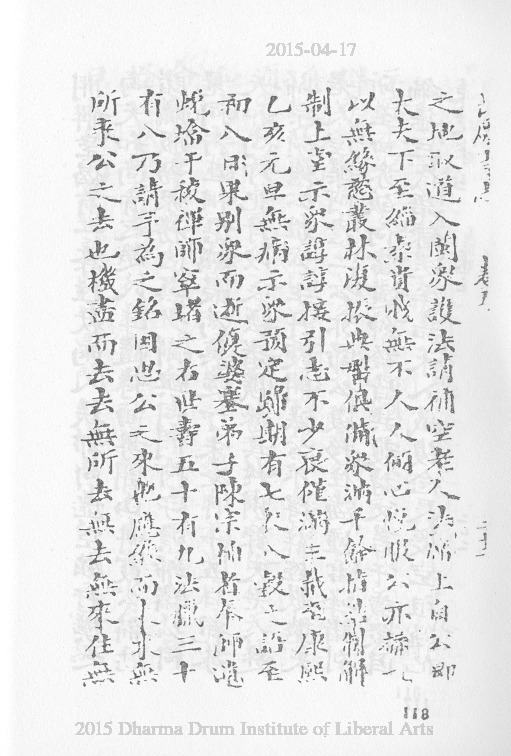 2015-04-17
之地取道入閩眾護法請補空老人法席上自公卿
大夫下至緇素賞悅無不人人傾心悅服公亦補元
以無緣慈叢林復振興畢俱備眾滿千餘結制解
制上堂示眾諄諄接引志不少衰僅滿三載至康熙
乙亥元旦無病示眾預定歸期有七九八穀之語至
初八日果別眾而逝優婆塞弟子陳宗 者奉師遺
蛻塔于 禪師空塔之右世壽五十有九法臘三十
有八乃請予為之銘因思公之來也應緣而來來無
所來公之去也機盡而去去無所去無去無來住無
118
2015 Dharma Drum Institute of Liberal Arts